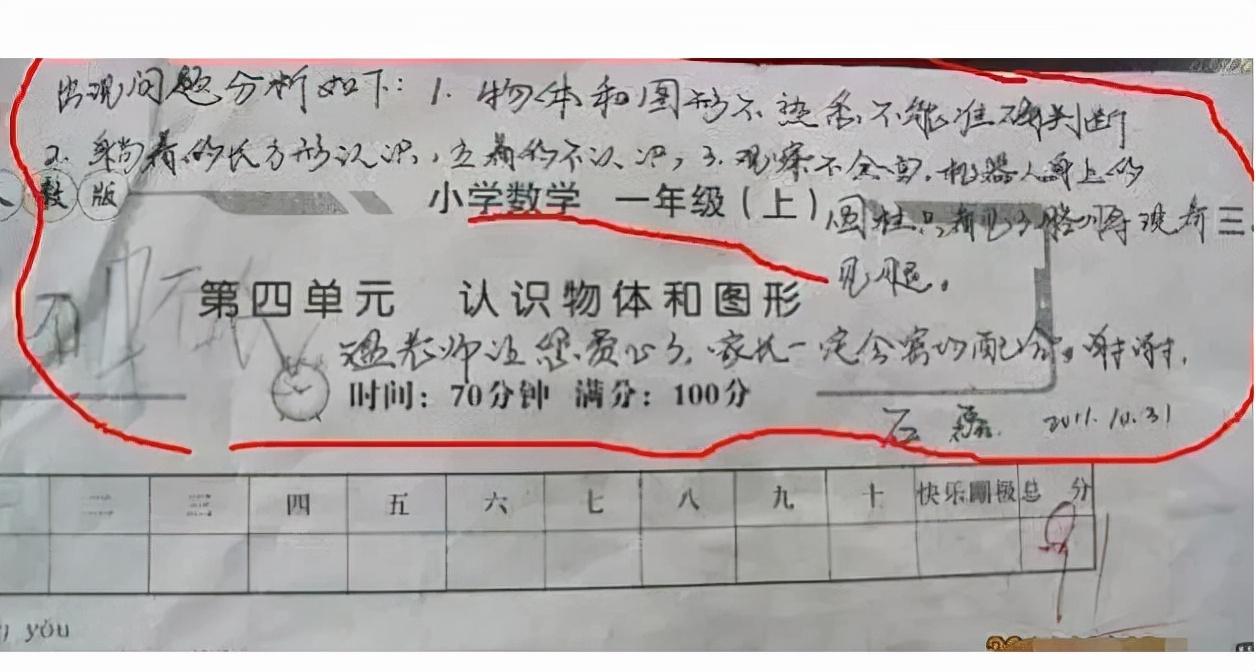 出现问题分析如下: 1. 物体和图形不熟悉,不能准确判断
2. 躺着的长方形认识,立着的不认识,3. 观察不全面,机器人身上的
教版
小学数学 一年级(上)
圆柱只看见了胳膊没看
见腿。
三、
第四单元 认识物体和图形
老师让您费心了,家长一定会密切配合。谢谢,
时间:70分钟 满分:100分
石磊 2011.10.31
二 三 四 五 六 七 八 九 十 快乐 总 分
yǒu